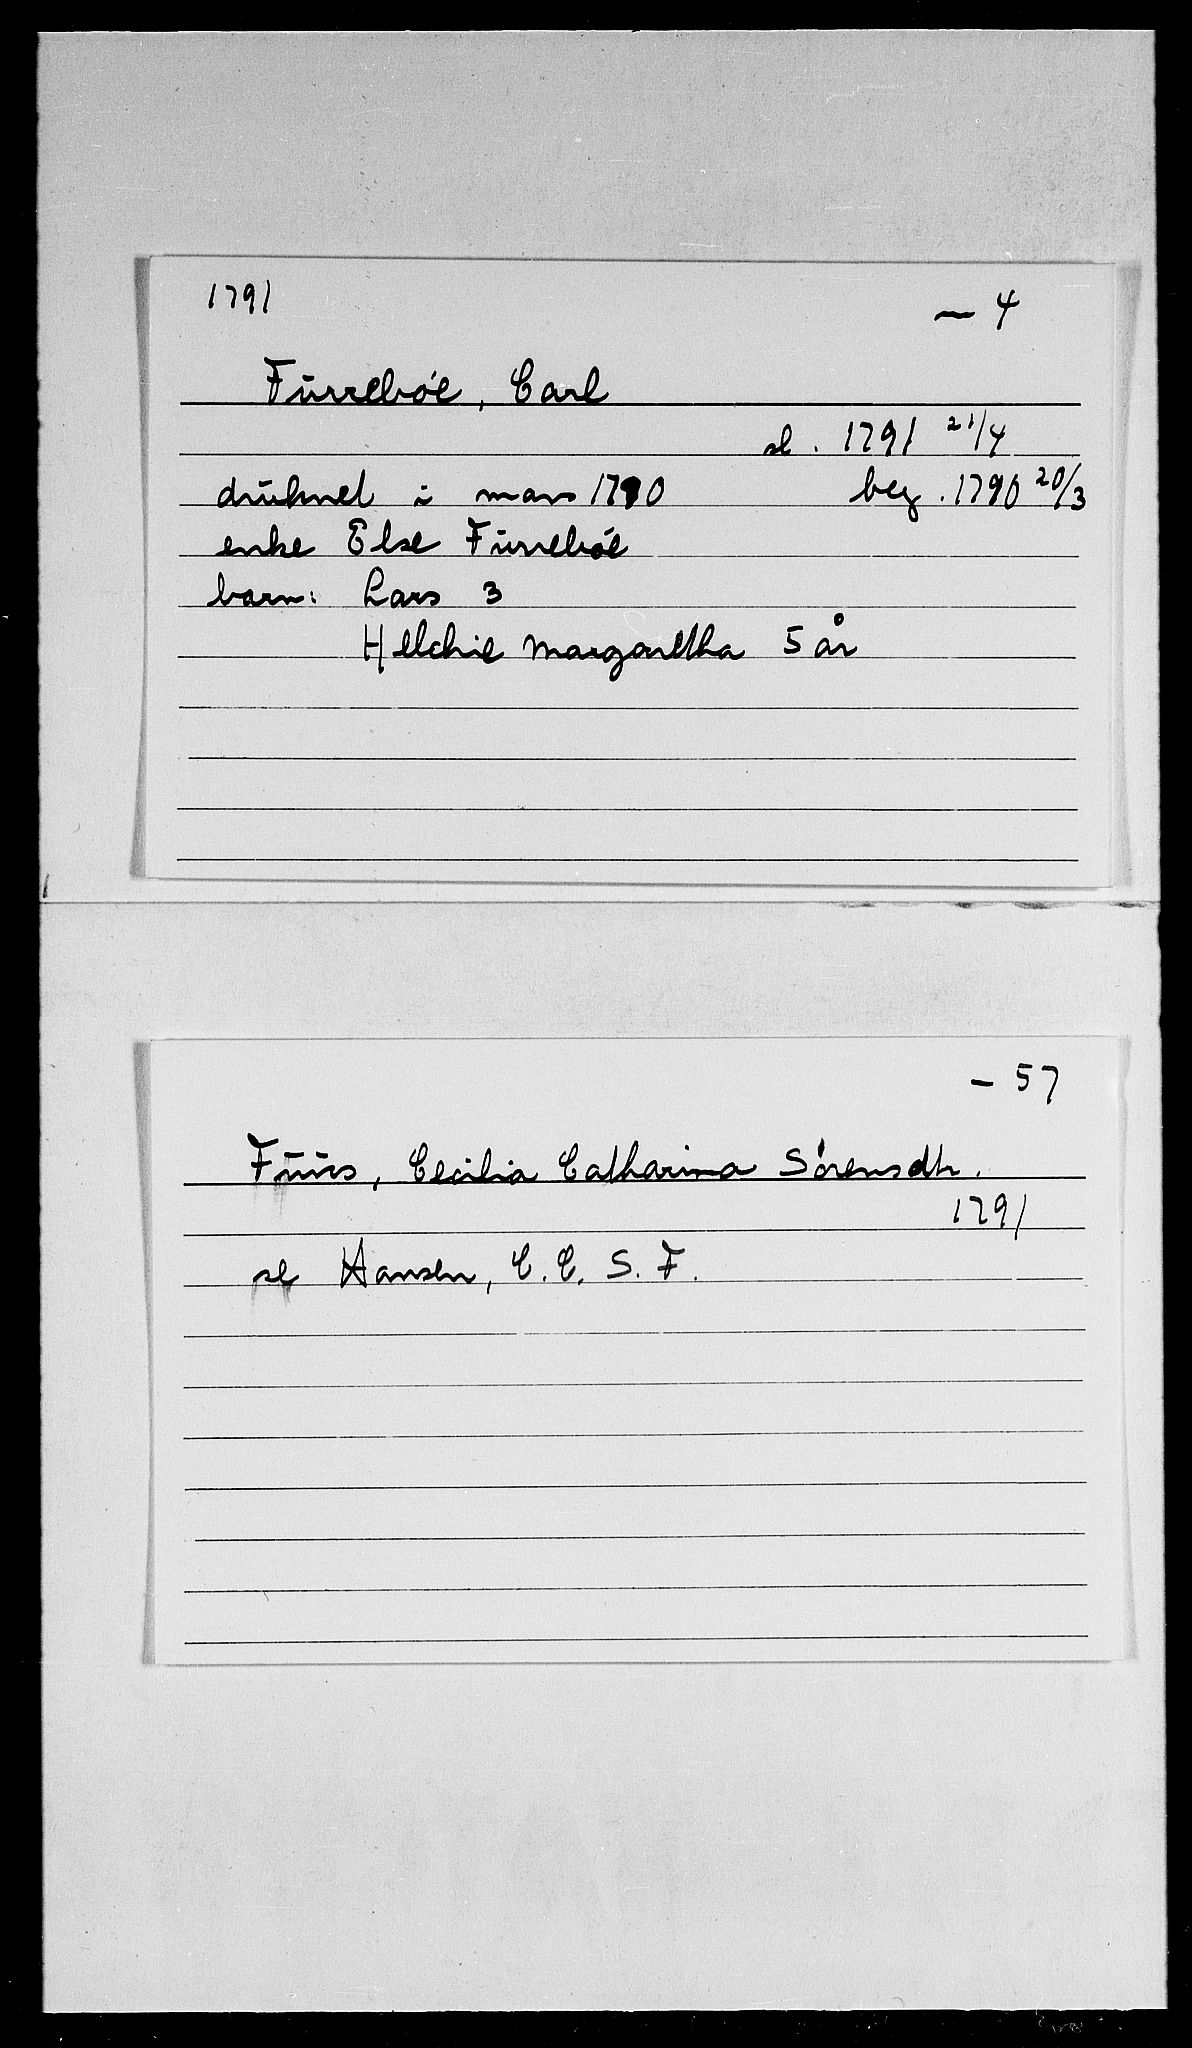 1791 — 4
Furrebøe, Carl
sl. 1791 21/4
druknet i mars 1790 beg. 1790 20/3
enke Else Furrebøe
barn: Lars 3
Helchie Margaretha 5 år
- 57
Fuurs, Cecilia Catharina Sørensdtr.
1791
se Hansen, C. C. S. F.